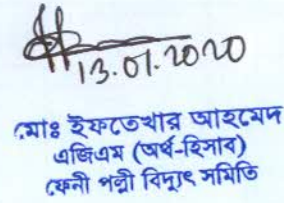 13.01.2020
মোঃ ইফতেখার আহমেদ
এজিএম (অর্থ-হিসাব)
ফেনী পল্লী বিদ্যুৎ সমিতি